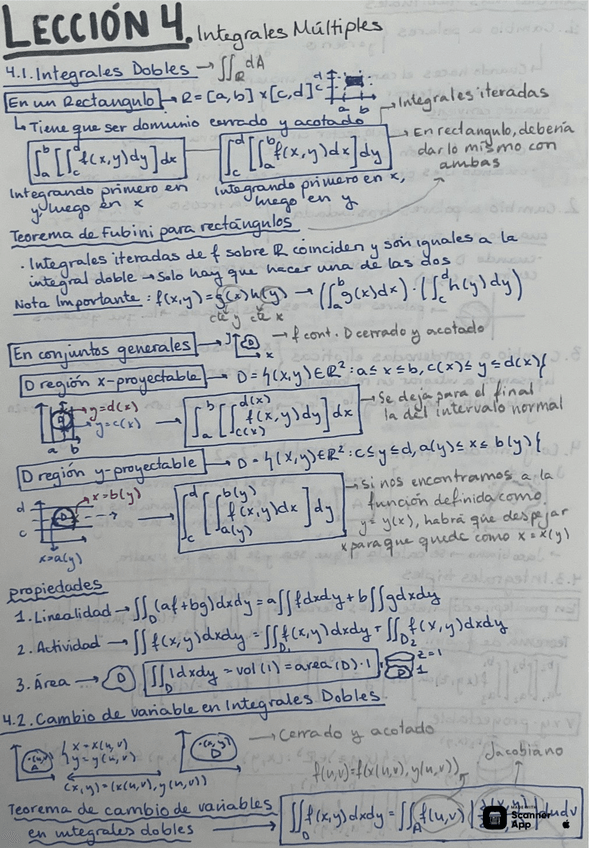 LECCIÓN 4. Integrales Múltiples
4.1. Integrales Dobles → ∬_R dA
En un Rectangulo → R = [a, b] x [c, d] d c a b
↳ Tiene que ser dominio cerrado y acotado → Integrales iteradas
∫_a^b [∫_c^d f(x,y)dy] dx ∫_c^d [∫_a^b f(x,y)dx] dy → En rectangulo, debería dar lo mismo con ambas
Integrando primero en y, luego en x
Integrando primero en x, luego en y
Teorema de Fubini para rectángulos
· Integrales iteradas de f sobre R coinciden y son iguales a la
integral doble → Solo hay que hacer una de las dos
Nota Importante: f(x,y) = g(x)h(y) → (∫_a^b g(x)dx) · (∫_c^d h(y)dy)
cte y cte x
En conjuntos generales → y D x → f cont. D cerrado y acotado
D región x-proyectable → D = {(x,y) ∈ ℝ²: a ≤ x ≤ b, c(x) ≤ y ≤ d(x)}
D y=d(x) y=c(x) a b → ∫_a^b [∫_c(x)^d(x) f(x,y)dy] dx → Se deja para el final la del intervalo normal
D región y-proyectable → D = {(x,y) ∈ ℝ²: c ≤ y ≤ d, a(y) ≤ x ≤ b(y)}
d c D x=b(y) x=a(y) → ∫_c^d [∫_a(y)^b(y) f(x,y)dx] dy → si nos encontramos a la
función definida como
y=y(x), habrá que despejar
x para que quede como x=x(y)
propiedades
1. Linealidad → ∬_D (af+bg)dxdy = a∬fdxdy + b∬gdxdy
2. Actividad → ∬f(x,y)dxdy = ∬_D1 f(x,y)dxdy + ∬_D2 f(x,y)dxdy
3. Área → D ∬_D 1dxdy = vol(1) = area(D)·1 z=1 D 1
4.2. Cambio de variable en Integrales Dobles
·(u,v) A { x = x(u,v) y = y(u,v) ·(x,y) D → Cerrado y acotado
(x,y) = (x(u,v), y(u,v)) f(u,v) = f(x(u,v), y(u,v)) Jacobiano
Teorema de cambio de variables
en integrales dobles → ∬_D f(x,y)dxdy = ∬_A f(u,v) dudv
Scanner
App